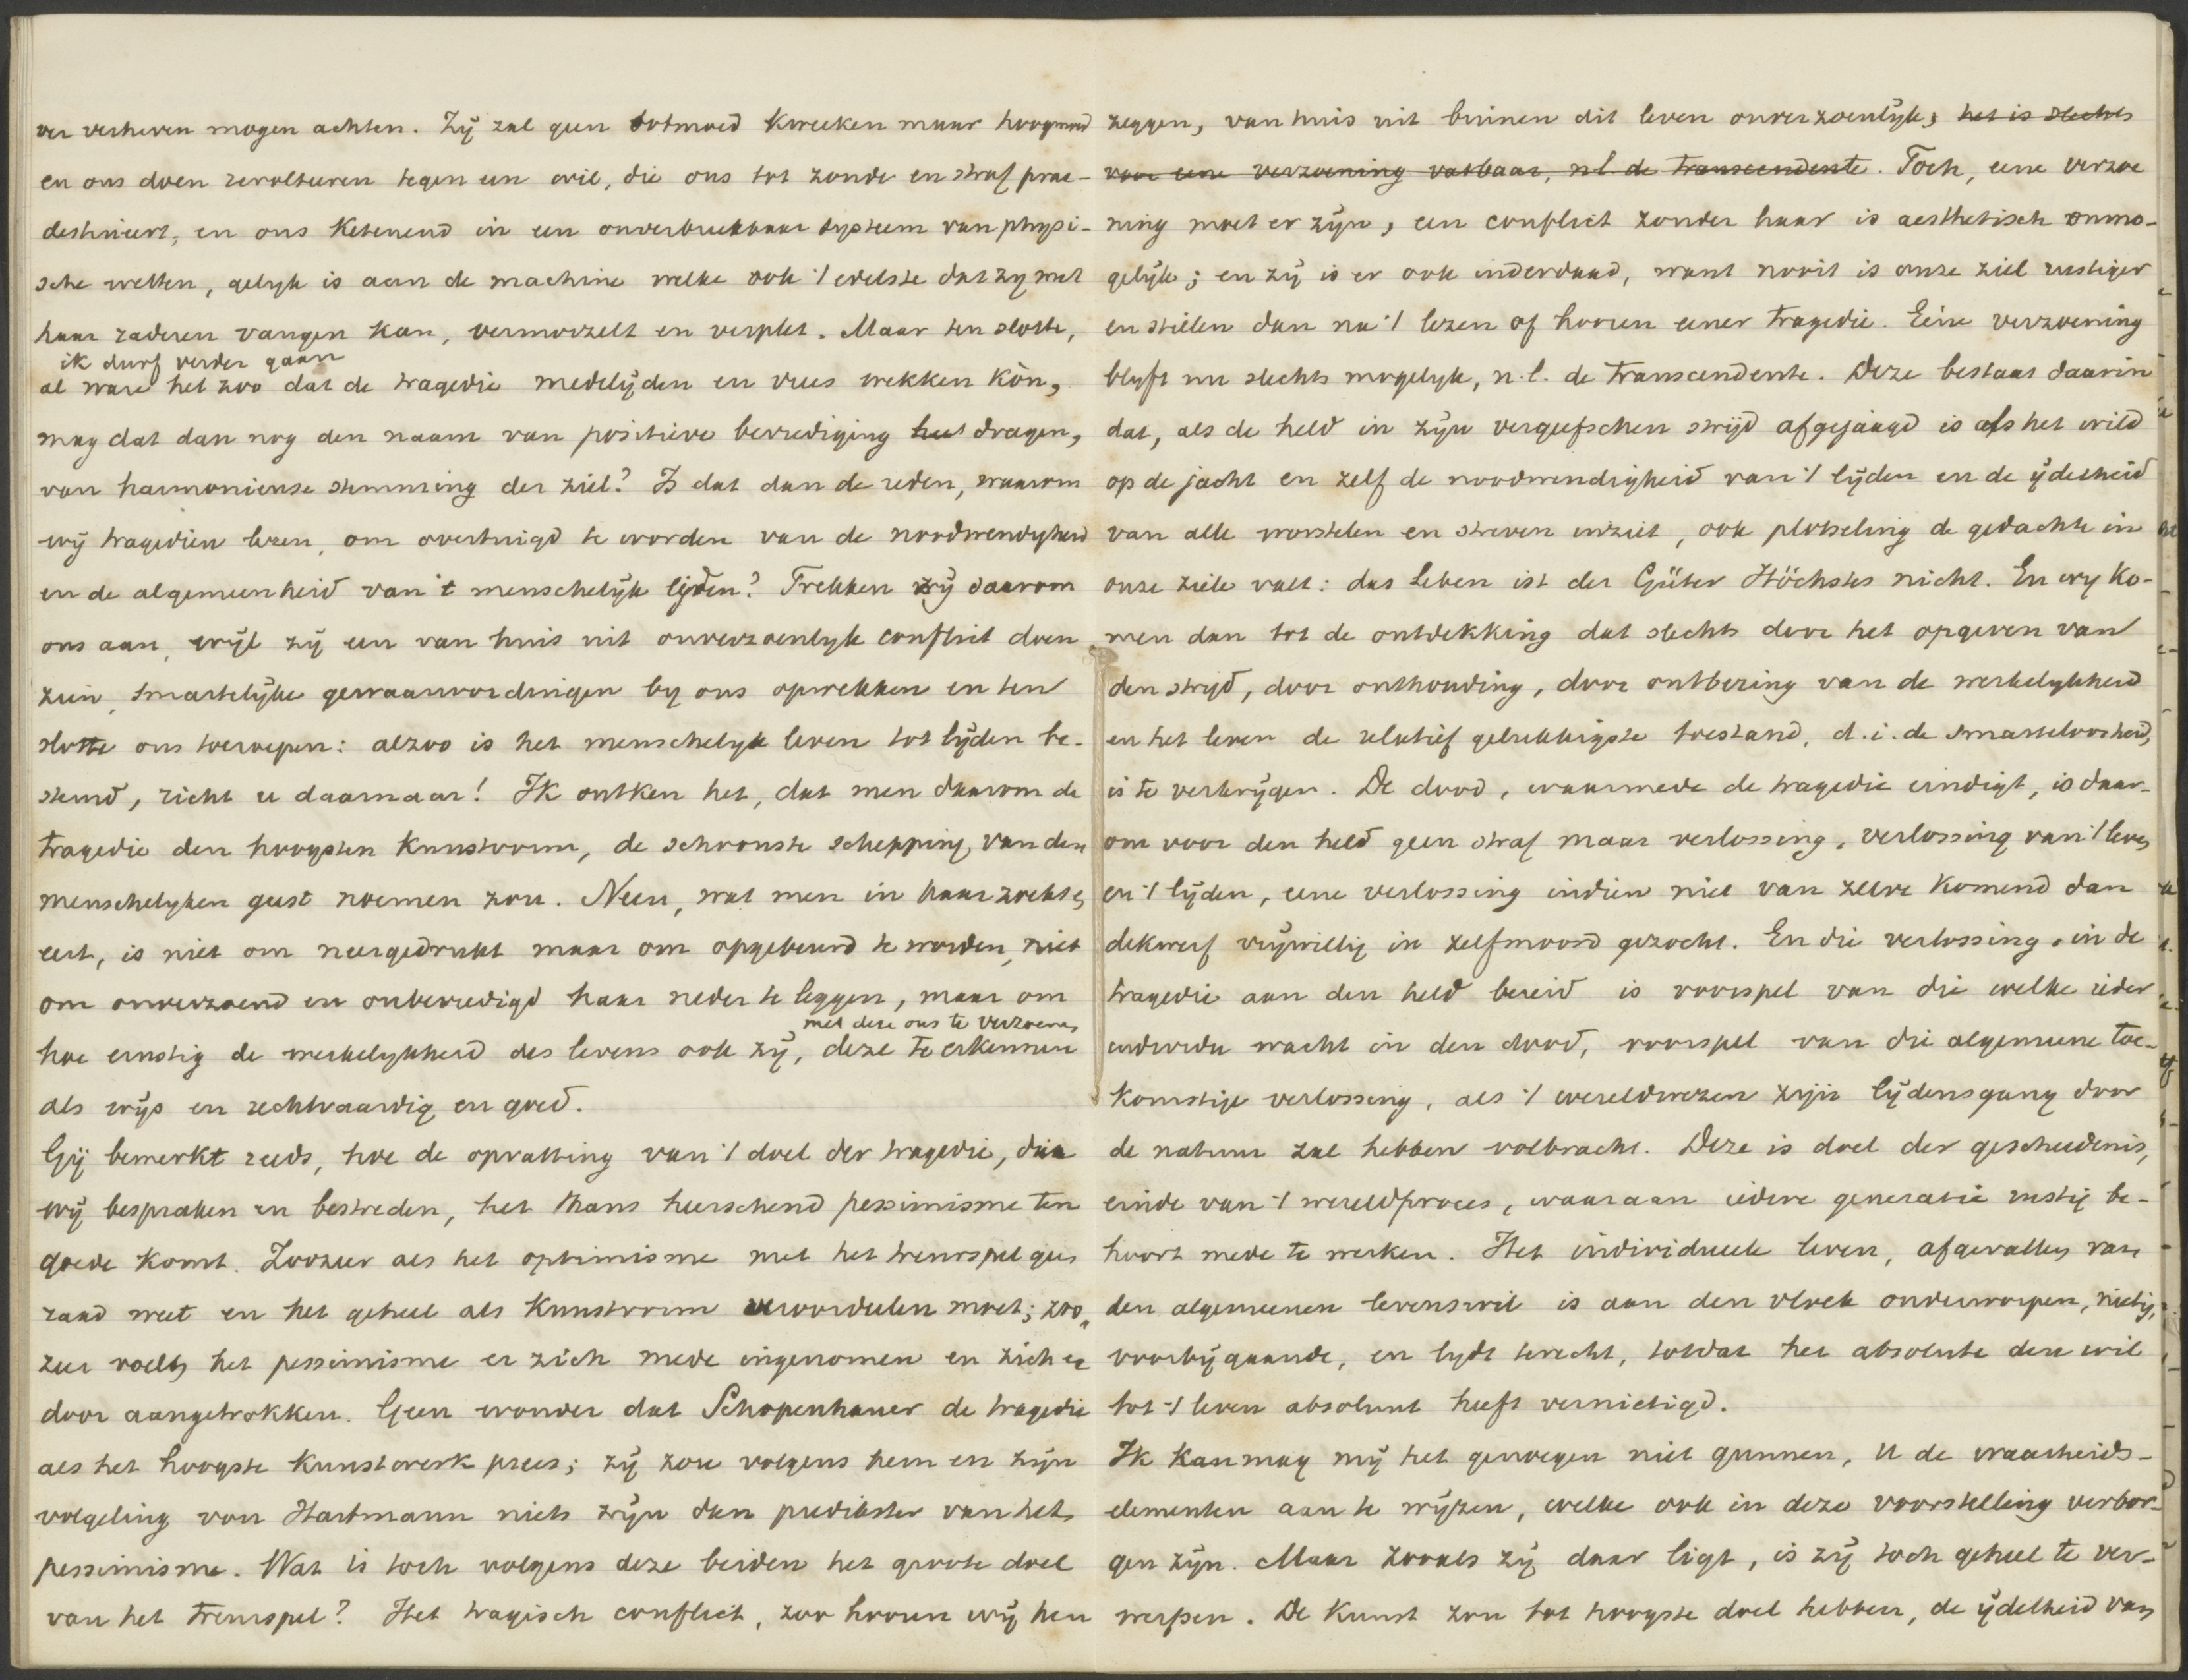 ver verheven mogen achten. Zij zal geen ootmoed kweeken maar hoogmoed
en ons doen revolteeren tegen een wil, die ons tot zonde en straf prae-
destineert, en ons ketenend in een onverbreekbaar systeem van physi-
sche wetten, gelijk is aan de machine welke ook 't edelste dat zij met
haar raderen vangen kan, vermorzelt en verplet. Maar ten slotte,
ik durf verder gaan
al ware het zoo dat de tragedie medelijden en vrees wekken kòn,
mag dat dan nog den naam van positieve bevrediging dragen,
van harmonieuse stemming der ziel? Is dat dan de reden, waarom
wij tragediën lezen, om overtuigd te worden van de noodwendigheid
en de algemeenheid van 't menschelijk lijden? Trekken zij daarom
ons aan, wijl zij een van huis uit onverzoenlijk conflict doen
zien, smartelijke gewaarwordingen bij ons opwekken en ten
slotte ons toeroepen: alzoo is het menschelijk leven tot lijden be-
stemd, richt u daarnaar! Ik ontken het, dat men daarom de
tragedie den hoogsten kunstvorm, de schoonste schepping van den
menschelijken geest noemen zou. Neen, wat men in haar zoekt
eert, is niet om neergedrukt maar om opgebeurd te worden, niet
om onverzoend en onbevredigd haar neder te leggen, maar om
met deze ons te verzoenen,
hoe ernstig de werkelijkheid des levens ook zij, deze te erkennen
als wijs en rechtvaardig en goed.
Gij bemerkt reeds, hoe de opvatting van 't doel der tragedie, die
wij bespraken en bestreden, het thans heerschend pessimisme ten
goede komt. Zoozeer als het optimisme met het treurspel geen
raad weet en het geheel als kunstvorm veroordeelen moet; zoo
zeer voelt het pessimisme er zich mede ingenomen en zich er
door aangetrokken. Geen wonder dat Schopenhauer de tragedie
als het hoogste kunstwerk prees; zij zou volgens hem en zijn
volgeling von Hartmann niets zijn dan predikster van het
pessimisme. Wat is toch volgens deze beiden het groote doel
van het treurspel? Het tragisch conflict, zoo hooren wij hen
zeggen, van huis uit binnen dit leven onverzoenlijk; het is slechts
voor eene verzoening vatbaar, nl. de transcendente. Toch, eene verzoe
ning moet er zijn, een conflict zonder haar is aesthetisch onmo-
gelijk; en zij is er ook inderdaad, want nooit is onze ziel rustiger
en stiller dan na 't lezen of hooren eener tragedie. Eéne verzoening
blijft nu slechts mogelijk, n.l. de transcendente. Deze bestaat daarin
dat, als de held in zijn vergeefschen strijd afgejaagd is als het wild
op de jacht en zelf de noodwendigheid van 't lijden en de ijdelheid
van alle worstelen en streven inziet, ook plotseling de gedachte in
onze ziele valt: das Leben ist der Güter Höchstes nicht. En wij ko-
men dan tot de ontdekking dat slechts door het opgeven van
den strijd, door onthouding, door ontbering van de werkelijkheid
en het leven de relatief gelukkigste toestand, d.i. de smarteloosheid,
is te verkrijgen. De dood, waarmede de tragedie eindigt, is daar-
om voor den held geen straf maar verlossing, verlossing van 't leven
en 't lijden, eene verlossing indien niet van zelve komend dan
dikwerf vrijwillig in zelfmoord gezocht. En die verlossing, in de
tragedie aan den held bereid is voorspel van die welke ieder
individu wacht in den dood, voorspel van die algemeene toe-
komstige verlossing, als 't wereldwezen zijn lijdensgang door
de natuur zal hebben volbracht. Deze is doel der geschiedenis,
einde van 't wereldproces, waaraan iedere generatie rustig be-
hoort mede te werken. Het individueele leven, afgevallen van
den algemeenen levenswil is aan den vloek onderworpen, nietig,
voorbijgaande, en lijdt terecht, totdat het absolute den wil
tot 't leven absoluut heeft vernietigd.
Ik kan mag mij het genoegen niet gunnen, U de waarheids-
elementen aan te wijzen, welke ook in deze voorstelling verbor-
gen zijn. Maar zooals zij daar ligt, is zij toch geheel te ver-
werpen. De kunst zou tot hoogste doel hebben, de ijdelheid van